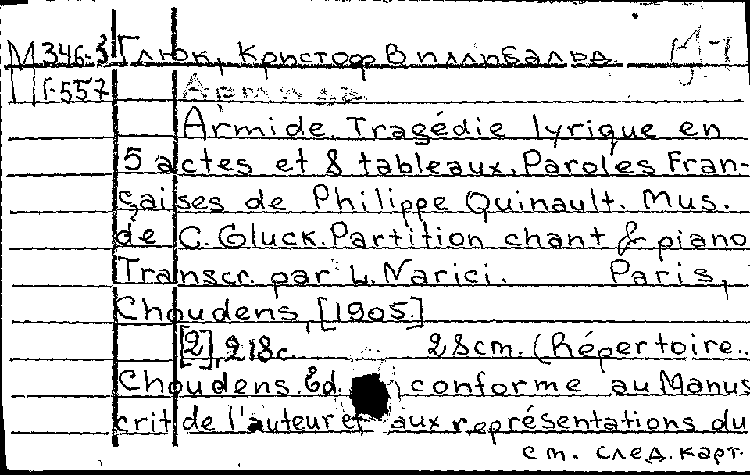 М 346-3 Глюк, Кристоф Виллибальд И-1
Г-557 Армида
Armide. Tragédie lyrique en
5 actes et 8 tableaux. Paroles Fran-
çaises de Philippe Quinault. Mus.
de C. Gluck. Partition chant & piano
Transcr. par L. Narici. Paris,
Choudens, [1905]
[2], 218с. 28cm. (Répertoire
Choudens. Ed. conforme au Manus
crit de l'auteur et aux représentations du
см. след. карт.